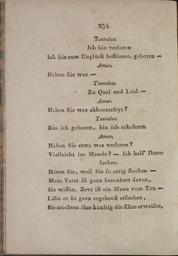 234
Tantalus.
Ich bin verloren
Ich bin zum Unglück bestimmt, geboren —
Amor.
Haben Sie was —
Tantalus.
Zu Qual und Leid —
Amor.
Haben Sie was
Tantalus.
Bin ich geboren, bin ich erkohren.
Amor.
Haben Sie etwa was verloren?
Vielleicht im Monde? — Ich half Ihnen
suchen.
Hören Sie, weil Sie so artig fluchen —
Mein Vater ist ganz bezaubert davon,
Sie wissen, Zevs ist ein Mann vom Ton —
Läßt er Sie ganz ergebenst ersuchen,
Sie möchten ihm künftig die Ehre erweisen,